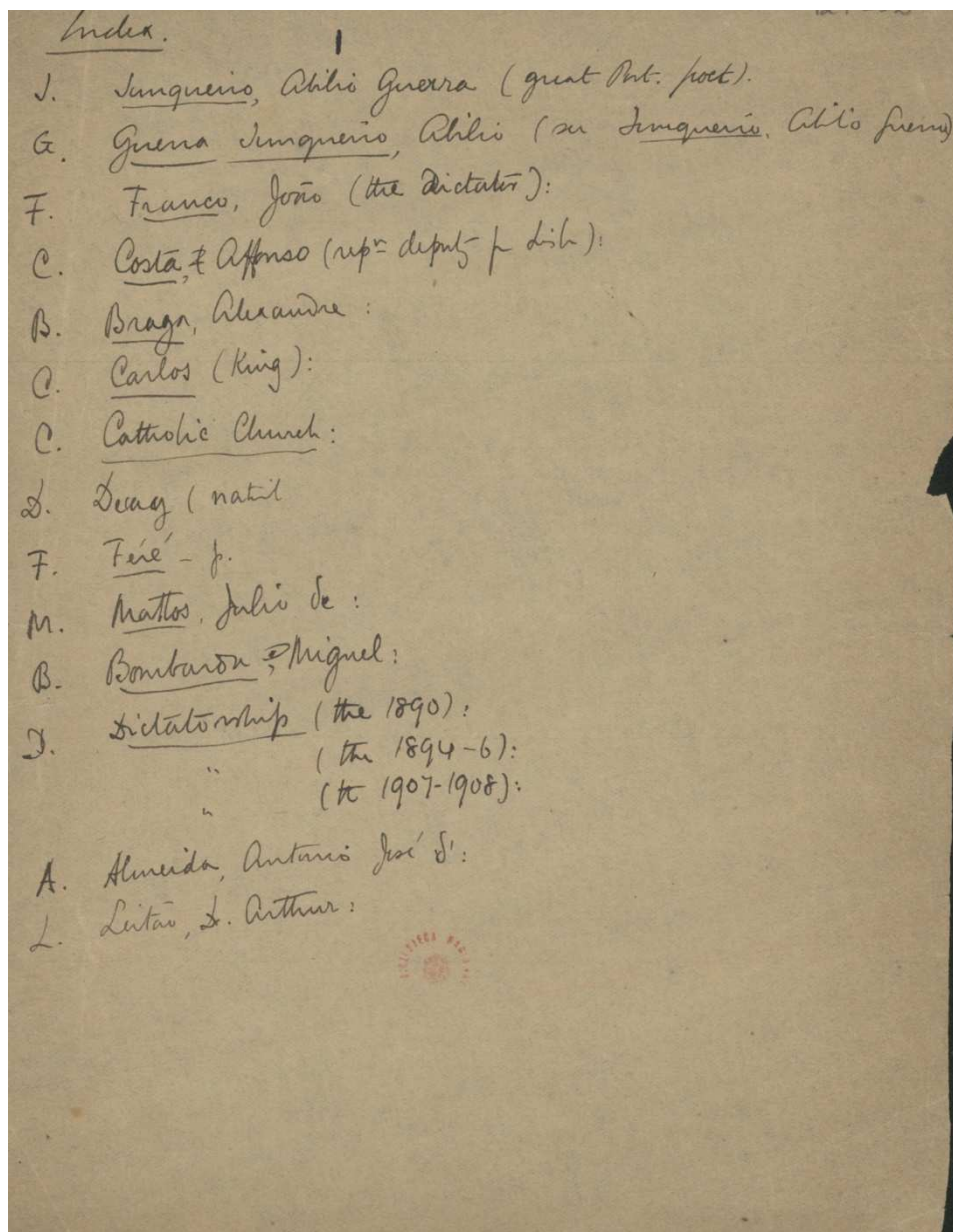 Index.
J. Junqueiro, Abilio Guerra (great Port. poet).
G. Guerra Junqueiro, Abilio (see Junqueiro, Abilio Guerra)
F. Franco, João (the Dictator):
C. Costa, Affonso (repn deputy f Lisb.):
B. Braga, Alexandre:
C. Carlos (King):
C. Catholic Church:
D. Decay (natil
F. Féré - p.
M. Mattos, Julio de:
B. Bombarda, Miguel:
D. Dictatorship (the 1890):
" (the 1894-6):
" (the 1907-1908):
A. Almeida, Antonio José d':
L. Leitão, D. Arthur: